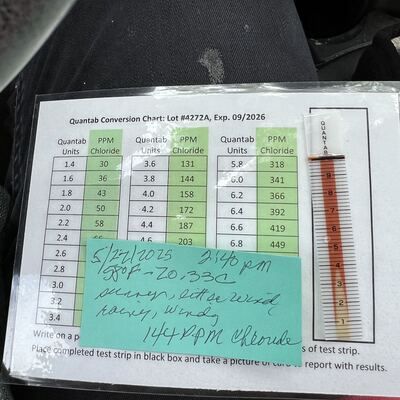 Quantab Conversion Chart: Lot #4272A, Exp. 09/2026
Quantab Units PPM Chloride Quantab Units PPM Chloride Quantab Units PPM Chloride
1.4 30 3.6 131 5.8 318
1.6 36 3.8 144 6.0 341
1.8 43 4.0 158 6.2 366
2.0 50 4.2 172 6.4 392
2.2 58 4.4 187 6.6 419
2.4 4.6 203 6.8 449
2.6
2.8
3.0
3.2
3.4
5/27/2025 2:40 pm
windy
144 PPM Chloride
Write on a p
s of test strip.
Place completed test strip in black box and take a picture of card to report with results.
QUANTAB
9
8
7
6
5
4
3
2
1